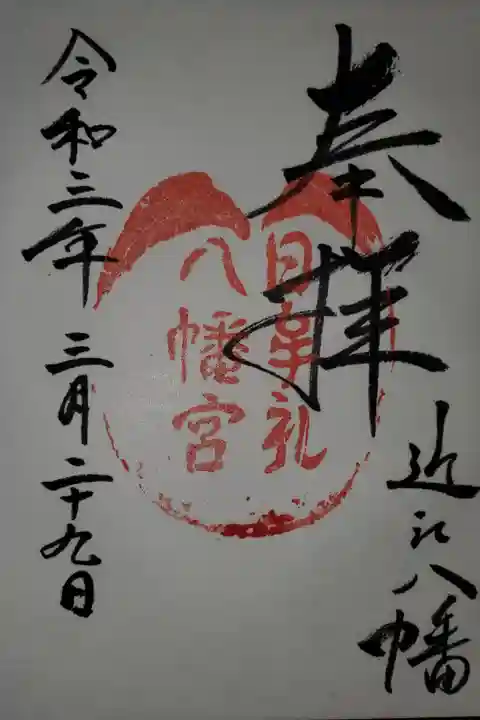 奉拝
近江八幡
日牟礼
八幡宮
令和三年 三月二十九日